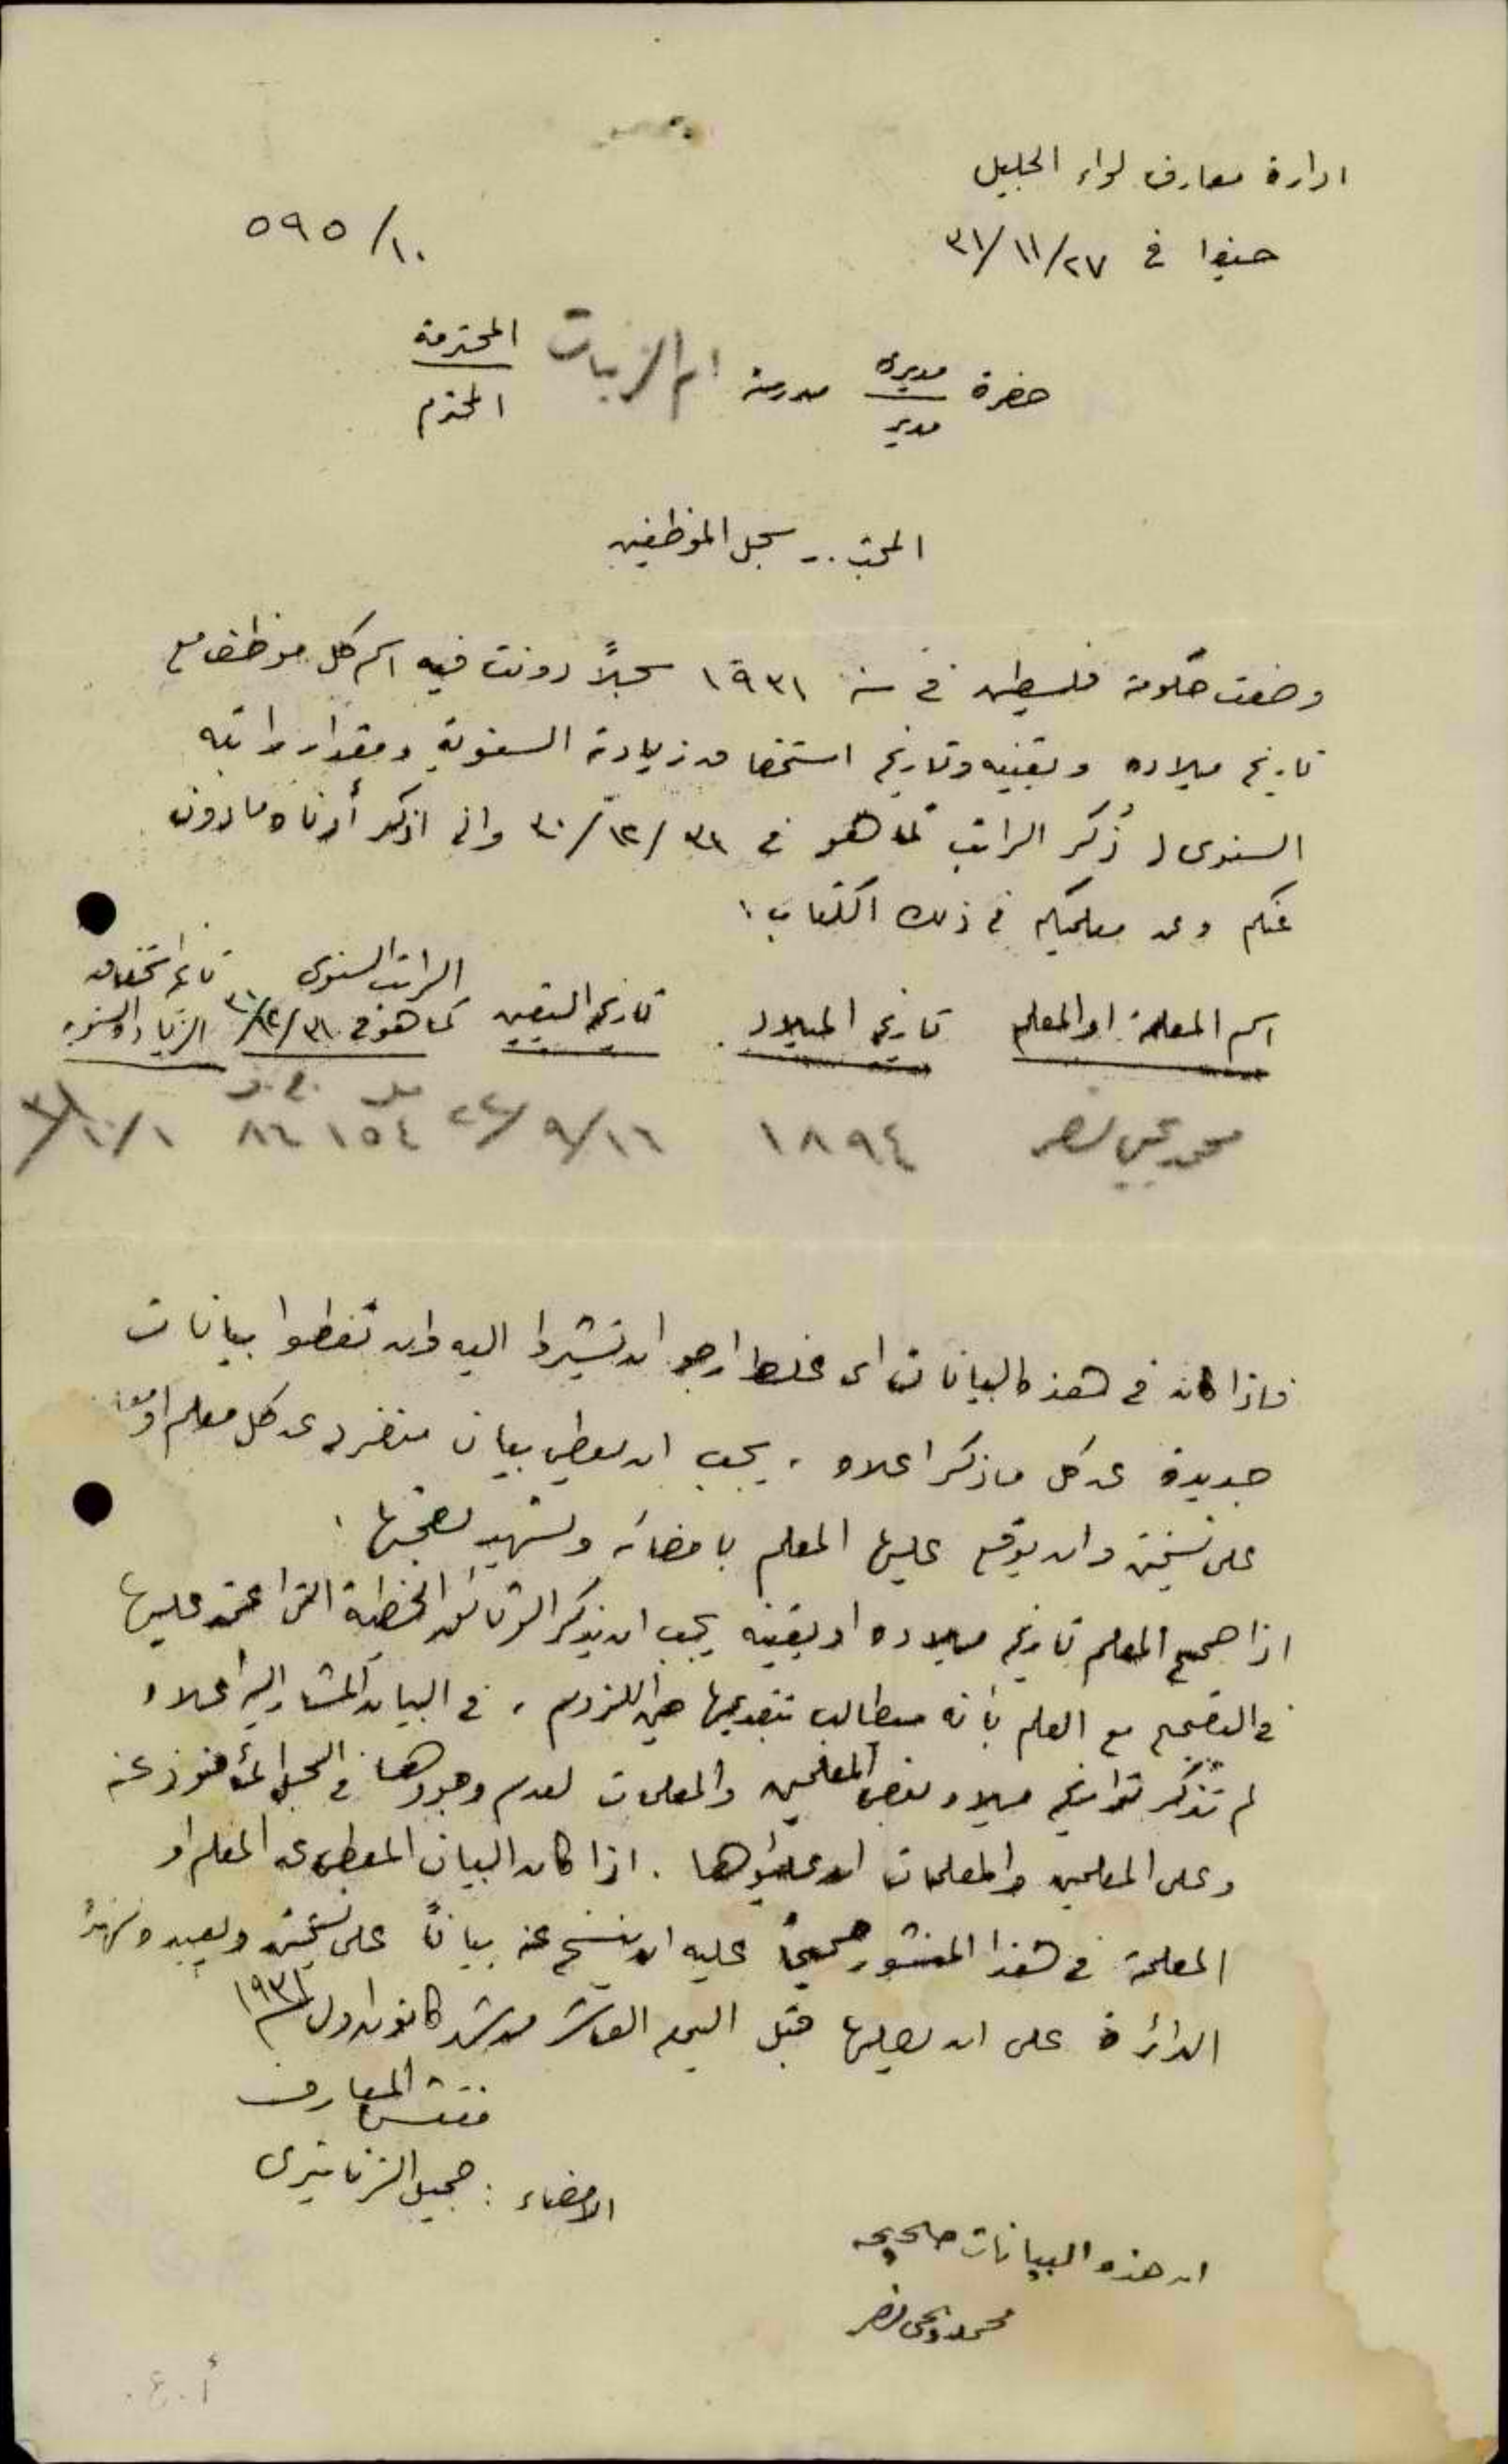 ادارة معارف لواء الجليل
حيفا في ٢٧/١١/٣١
٥٩٥/١٠
حضرة مديرة مدرسة ام الزينات المحترمة
مدير المحترم
المبحث .. سجل الموظفين
وضعت حكومة فلسطين في سنة ١٩٣١ سجلاً دونت فيه اسم كل موظف مع
تاريخ ميلاده وتعيينه وتاريخ استحقاقه زيادته السنوية ومقدار راتبه
السنوي (ذُكر الراتب كما هو في ٣١/١٢/٣٠ واني اذكر أدناه ما دون
عنكم وعن معلميكم في ذلك الكتاب :
اسم المعلمة او المعلم
تاريخ الميلاد
تاريخ التعيين
الراتب السنوي
كما هو في ٣١/١٢/٣٠
تاريخ استحقاق
الزيادة السنوية
مل ج.ف
محمد يحيى نصر ١٨٩٤ ١٦/٩/٢٤ ١٥٤ ٨٦ ١/١٠/٣١
فاذا كان في هذه البيانات اي غلط ارجو ان تشيروا اليه وان تعطوا بيانات
جديدة عن كل ما ذكر اعلاه . يجب ان يعطى بيان منفرد عن كل معلم او معلمة
على نسختين وان يوقع عليها المعلم بامضائه وتشهد لصحتها .
اذا صحح المعلم تاريخ ميلاده او تعيينه يجب ان يذكر الوثائق الخطية التي اعتمد عليها
في التصحيح مع العلم بأنه سيطالب بتقديمها حين اللزوم . في البيان المشار اليه اعلاه
لم تذكر تواريخ ميلاد بعض المعلمين والمعلمات لعدم وجودها في السجل المأخوذ عنه
وعلى المعلمين والمعلمات ان يملؤها . اذا كان البيان المعطى عن المعلم او
المعلمة في هذا المنشور صحيحاً عليه ان ينسخ عنه بياناً على نسختين ويعيده لهذه
الدائرة على ان يصلها قبل اليوم العاشر من شهر كانون اول ١٩٣١
مفتش المعارف
الامضاء : جميل الزناتيري
ان هذه البيانات صحيحه
محمد يحيى نصر
أ.ع.